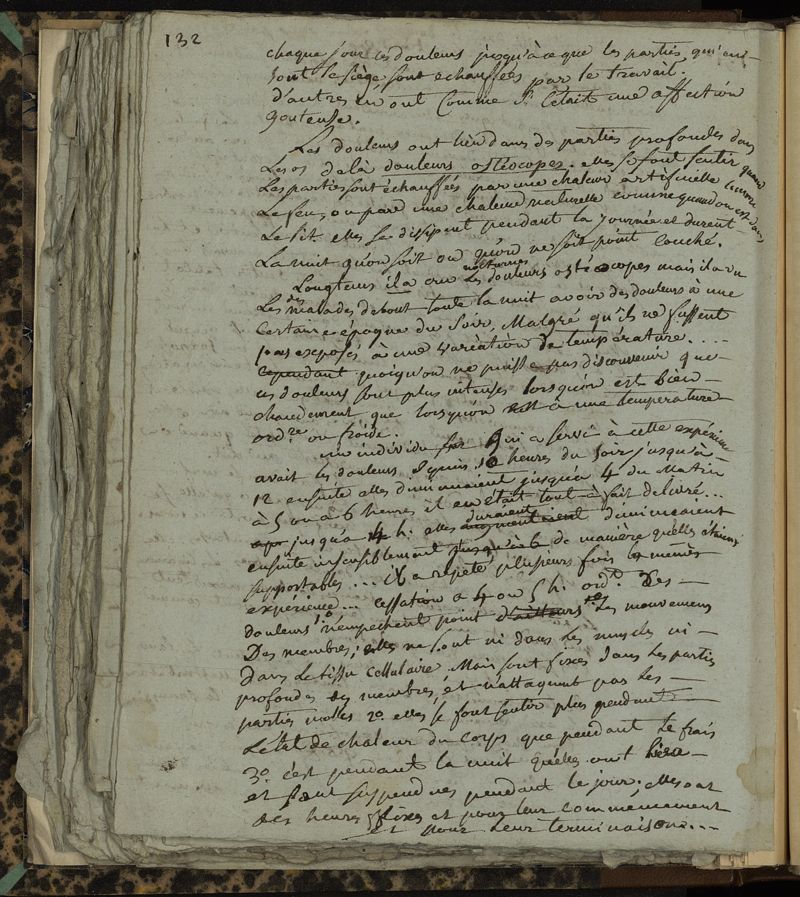 132
chaque jour ces douleurs jusqu'à ce que les parties qui en
sont le siège, sont echauffées par le travail.
d'autres en ont Comme Si C'etait une affection
gouteuse.
Les douleurs ont lieu dans des parties profondes dans
Les os de là douleurs ostéocopes. elles se font sentir quand
Les parties sont échauffées par une chaleur artificielle comme
Le feu, ou par une chaleur naturelle comme quand on est dans
Le lit. elles se dissipent pendant la journée et durent
La nuit qu'on soit ou qu'on ne soit point couché.
Longtems il a cru les douleurs ostéocopes nocturnes mais il a vu
Les des malades debout toute la nuit avoir des douleurs à une
certaine époque du soir, Malgré qu'ils ne fussent
pas exposés à une variation de température. ...
cependant quoiqu'on ne puisse pas disconvenir que
ces douleurs sont plus intenses lorsqu'on est bien
chaudement que lorsqu'on est à une température
ord.re ou froide.
un individu qui a servi à cette expérience
avait les douleurs depuis 10 heures du soir jusqu'à
12 ensuite elles diminuaient jusqu'à 4 du matin
à 5 ou à 6 heures il en était tout à fait delivré...
jusqu'à 4 h. elles augmentaient duraient diminuaient
ensuite insensiblement jusqu'à 6 de manière qu'elles étaient
supportables ... il a répété plusieurs fois la même
expérience ... cessation à 4 ou 5 h. ord.t Des
douleurs 1o n'empechent point d'ailleurs les mouvemens
Des membres; elles ne sont ni dans les muscles ni
Dans Le tissu cellulaire Mais sont fixes dans les parties
profondes des membres, et n'attaquent pas les
parties molles 2o elles se font sentir plus pendant
L'état de chaleur du corps que pendant le frais
3o c'est pendant la nuit qu'elles ont lieu
et sont suspendues pendant le jour; elles ont
des heures fixes et pour leur commencement
et pour leur terminaison...